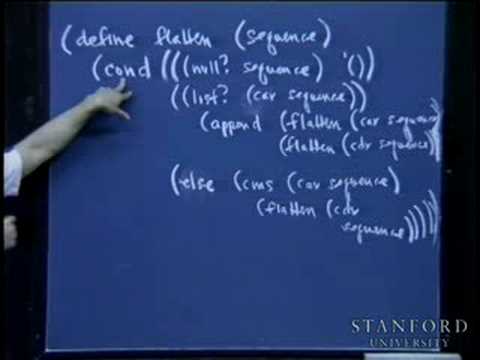 (define flatten (sequence)
(cond (((null? sequence) '())
((list? (car sequence))
(append (flatten (car sequence))
(flatten (cdr sequence)))
(else (cons (car sequence)
(flatten (cdr
sequence)))))
STANFORD
UNIVERSITY